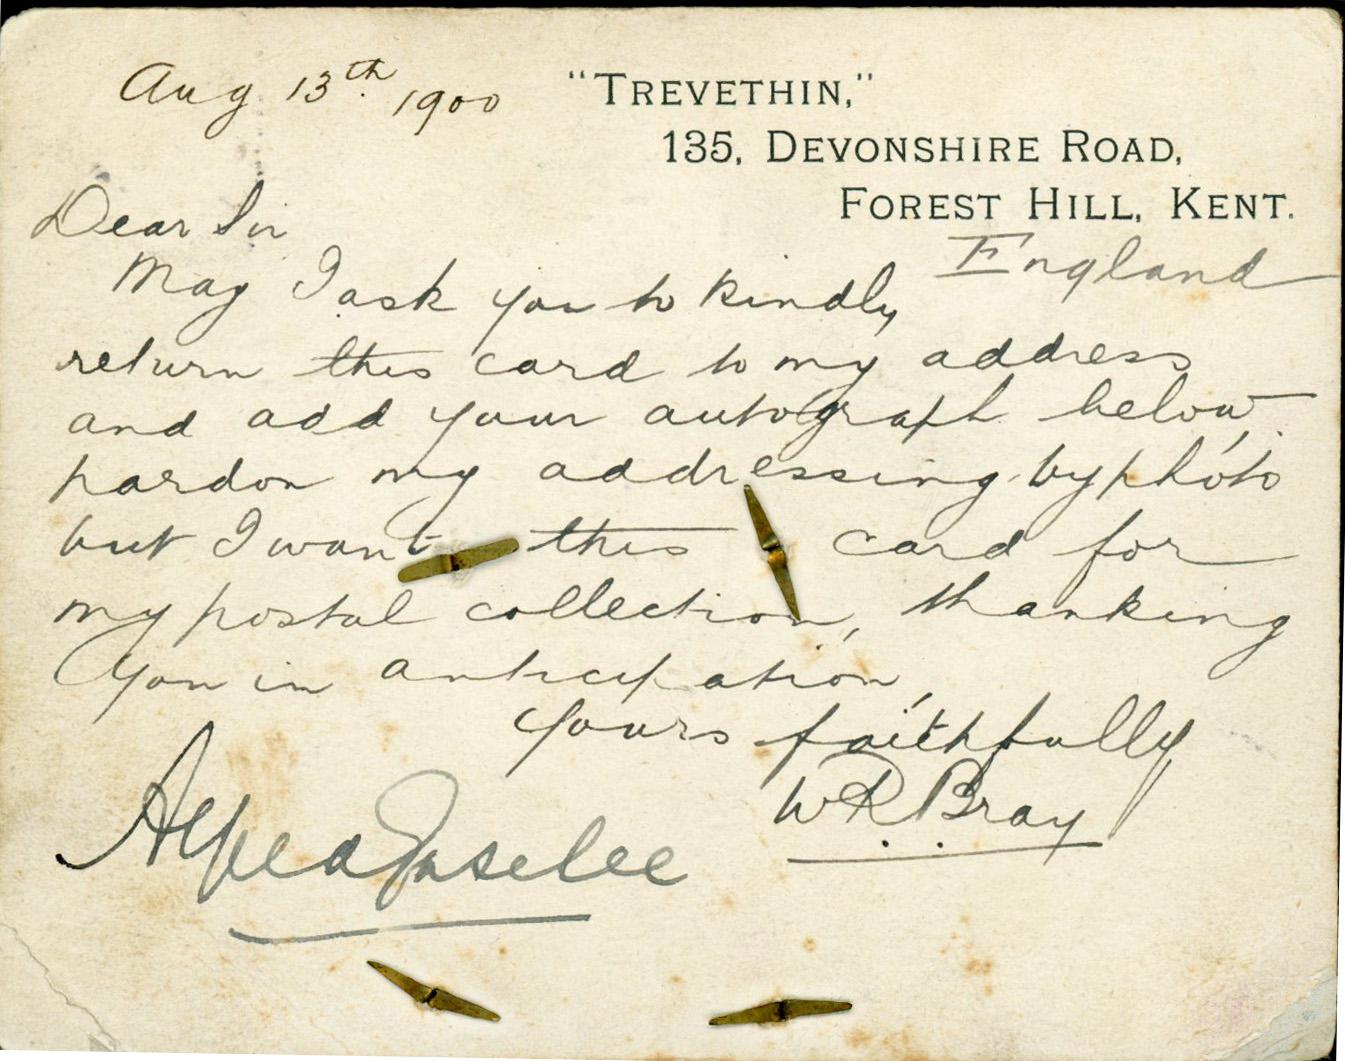 Aug 13th 1900
"TREVETHIN,"
135, DEVONSHIRE ROAD,
FOREST HILL, KENT.
England
Dear Sir
May I ask you to kindly
return this card to my address
and add your autograph below
pardon my addressing by photo
but I want this card for
my postal collection, thanking
you in anticipation,
Yours faithfully
W.R.Bray
Alfred